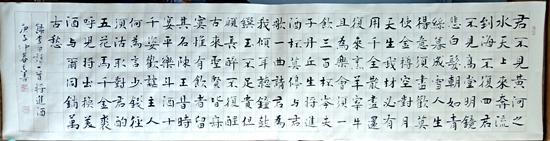 君不見黃河之
水天上來奔流
到海不復回君
不見高堂明鏡
悲白髮朝如青
絲暮成雪人生
得意須盡歡莫
使金樽空對月
天生我材必有
用千金散盡還
復來烹羊宰牛
且為樂會須一
飲三百杯岑夫
子丹丘生將進
酒杯莫停與君
歌一曲請君為
我傾耳聽鐘鼓
饌玉不足貴但
願長醉不願醒
古來聖賢皆寂
寞惟有飲者留
其名陳王昔時
宴平樂斗酒十
千恣歡謔主人
何為言少錢徑
須沽取對君酌
五花馬千金裘
呼兒將出換美
酒與爾同銷萬
古愁
錄李白詩一首將進酒